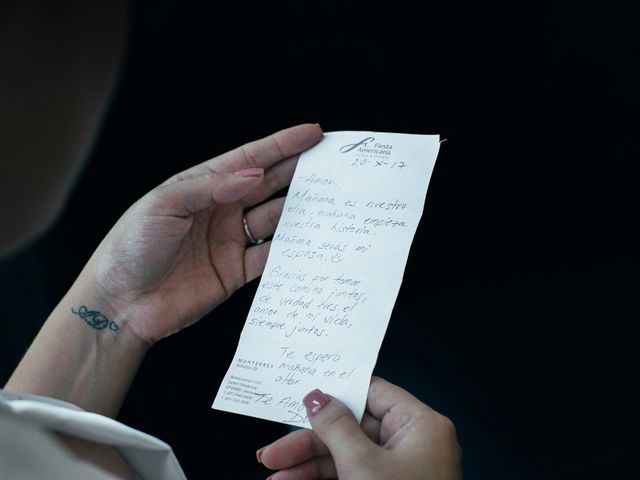 Fiesta
Americana
20-X-17
-Amor:
Mañana es nuestro
día, mañana empieza
nuestra historia.
Mañana serás mi
esposa.
Gracias por tomar
este camino juntos,
de verdad eres el
amor de mi vida,
siempre juntos.
Te espero
mañana en el
altar
MONTERREY
Te Amo